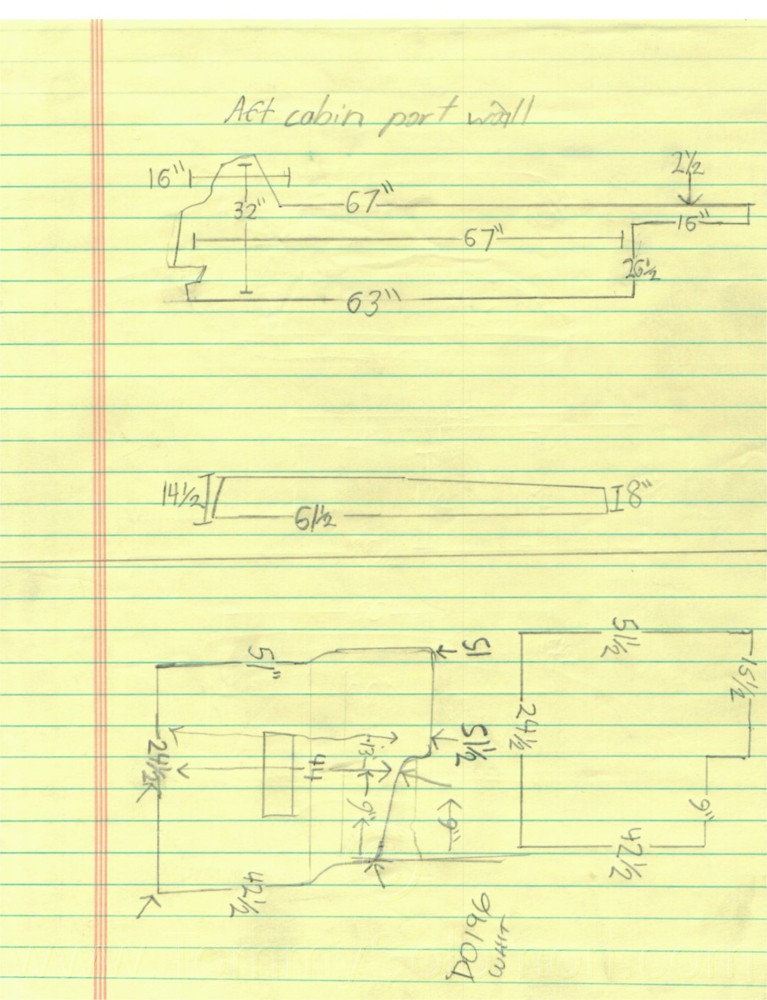 Aft cabin port wall
16"
32"
67"
2½
16"
67"
26½
63"
14½
8"
61½
51"
51
51½
15½
24½
51½
24½
13"
44
9"
9"
9"
42½
42½
D0196
WHIT